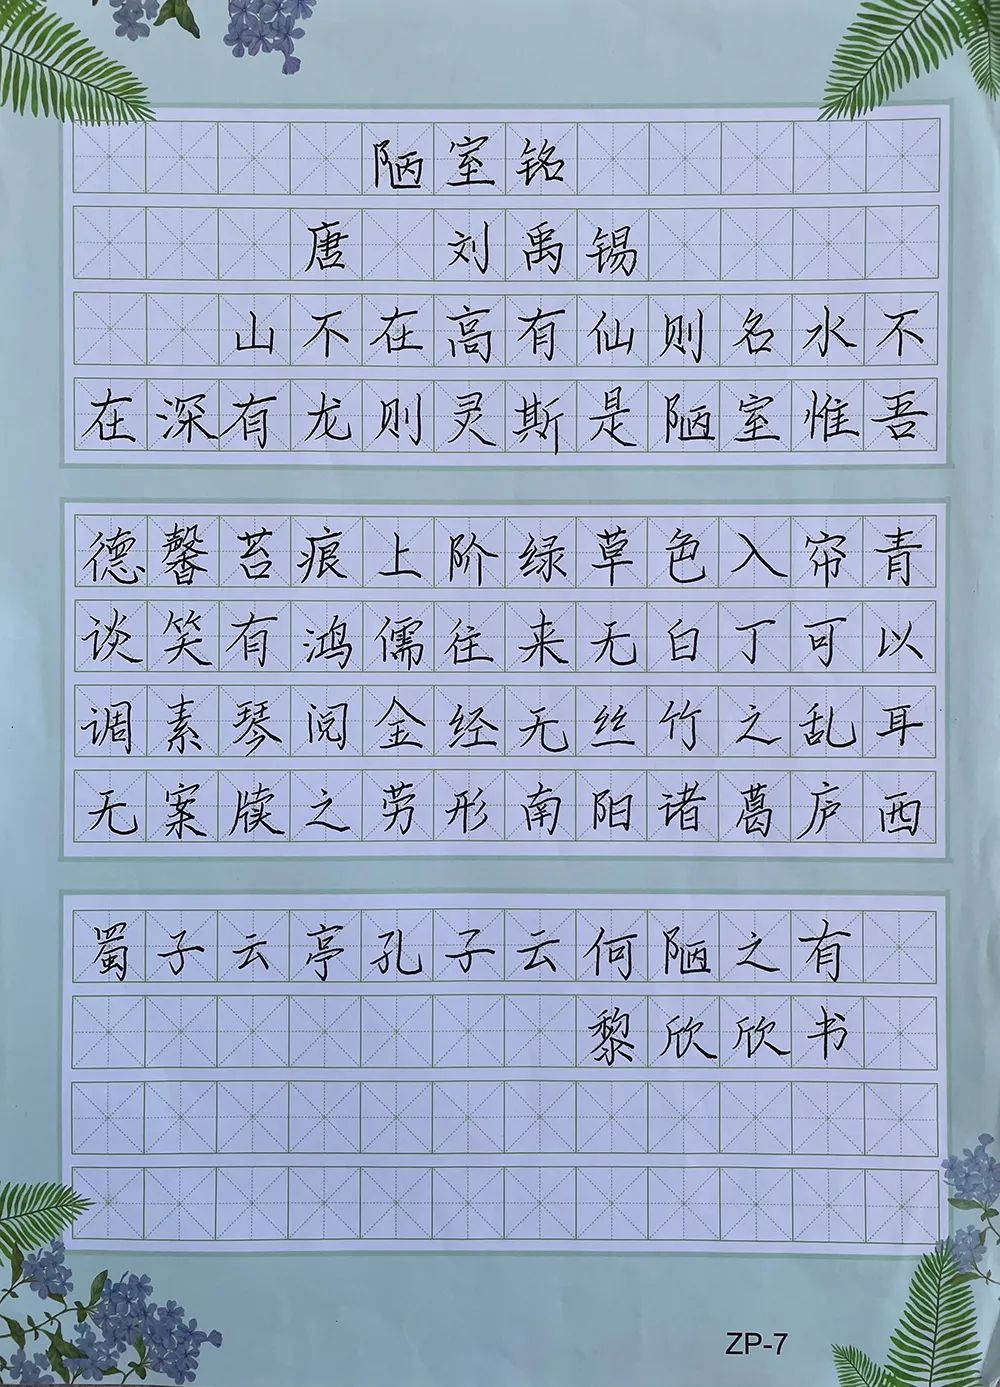 陋室铭
唐 刘禹锡
山不在高有仙则名水不
在深有龙则灵斯是陋室惟吾
德馨苔痕上阶绿草色入帘青
谈笑有鸿儒往来无白丁可以
调素琴阅金经无丝竹之乱耳
无案牍之劳形南阳诸葛庐西
蜀子云亭孔子云何陋之有
黎欣欣书
ZP-7